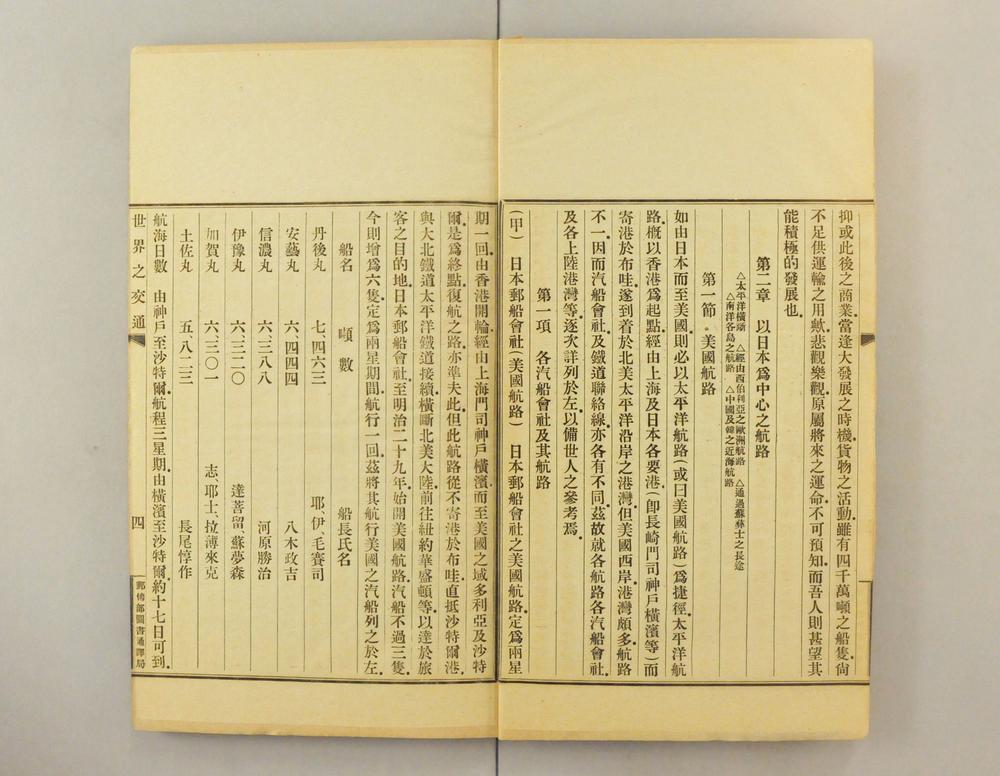 抑或此後之商業當逢大發展之時機貨物之活動雖有四千萬噸之船隻尙
不足供運輸之用歟悲觀樂觀原屬將來之運命不可預知而吾人則甚望其
能積極的發展也
第二章　以日本爲中心之航路
△太平洋橫斷　△經由西伯利亞之歐洲航路　△通過蘇彝士之長途
△南洋各島之航路　△中國及韓之近海航路
第一節　美國航路
如由日本而至美國則必以太平洋航路(或曰美國航路)爲捷徑太平洋航
路槪以香港爲起點經由上海及日本各要港(卽長崎門司神戶橫濱等)而
寄港於布哇遂到着於北美太平洋沿岸之港灣但美國西岸港灣頗多航路
不一因而汽船會社及鐵道聯絡線亦各有不同茲故就各航路各汽船會社
及各上陸港灣等逐次詳列於左以備世人之參考焉
第一項　各汽船會社及其航路
(甲)　日本郵船會社(美國航路)　日本郵船會社之美國航路定爲兩星
期一回由香港開輪經由上海門司神戶橫濱而至美國之域多利亞及沙特
爾是爲終點復航之路亦準夫此但此航路從不寄港於布哇直抵沙特爾港
與大北鐵道太平洋鐵道接續橫斷北美大陸前往紐約華盛頓等以達於旅
客之目的地日本郵船會社至明治二十九年始開美國航路汽船不過三隻
今則增爲六隻定爲兩星期間航行一回茲將其航行美國之汽船列之於左
船名　噸數　船長氏名
丹後丸　七四六三　耶、伊、毛賽司
安藝丸　六、四四四　八木政吉
信濃丸　六、三八八　河原勝治
伊豫丸　六、三二〇　達菩留、蘇夢森
加賀丸　六、三〇一　志、耶士、拉薄來克
土佐丸　五、八二三　長尾惇作
航海日數　由神戶至沙特爾航程三星期由橫濱至沙特爾約十七日可到
世界之交通　四　郵傳部圖書通譯局